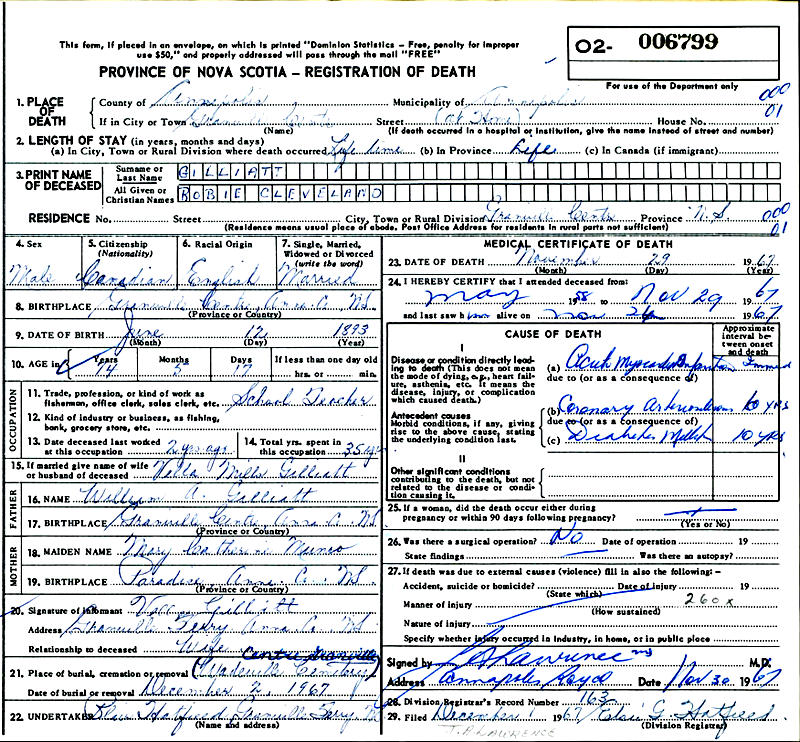 This form, if placed in an envelope, on which is printed "Dominion Statistics – Free, penalty for improper
use $50," and properly addressed will pass through the mail "FREE"
O2- 006799
PROVINCE OF NOVA SCOTIA – REGISTRATION OF DEATH
For use of the Department only
1. PLACE OF DEATH
County of Annapolis Municipality of Annapolis 000
If in City or Town Granville Centre Street (At Home) House No. 01
(Name) (If death occurred in a hospital or institution, give the name instead of street and number)
2. LENGTH OF STAY (in years, months and days)
(a) In City, Town or Rural Division where death occurred Life time (b) In Province Life (c) In Canada (if immigrant)
3. PRINT NAME OF DECEASED
Surname or Last Name GILLIATT
All Given or Christian Names ROBIE CLEVELAND
RESIDENCE No. Street City, Town or Rural Division Granville Centre Province N.S. 000
(Residence means usual place of abode. Post Office Address for residents in rural parts not sufficient) 01
4. Sex 5. Citizenship (Nationality) 6. Racial Origin 7. Single, Married, Widowed or Divorced (write the word)
Male Canadian English Married
8. BIRTHPLACE Granville Centre Anna. Co. NS
(Province or Country)
9. DATE OF BIRTH June 12 1893
(Month) (Day) (Year)
10. AGE in Years Months Days If less than one day old
74 5 17 hrs. or min.
OCCUPATION
11. Trade, profession, or kind of work as fisherman, office clerk, sales clerk, etc. School Teacher
12. Kind of industry or business, as fishing, bank, grocery store, etc.
13. Date deceased last worked at this occupation 2 yrs ago 14. Total yrs. spent in this occupation 35 yrs
15. If married give name of wife or husband of deceased Vella Mills Gilliatt
FATHER
16. NAME William A. Gilliatt
17. BIRTHPLACE Granville Centre Anna. Co. NS
(Province or Country)
MOTHER
18. MAIDEN NAME Mary Catherine Munro
19. BIRTHPLACE Paradise Anna. Co. NS.
(Province or Country)
20. Signature of informant Vella Gilliatt
Address Granville Ferry Anna Co NS
Relationship to deceased Wife
Centre Granville
21. Place of burial, cremation or removal Cemetery
Date of burial or removal December 2, 1967
22. UNDERTAKER Blair Hatfield Granville Ferry NS
(Name and address)
MEDICAL CERTIFICATE OF DEATH
23. DATE OF DEATH November 29 1967
(Month) (Day) (Year)
24. I HEREBY CERTIFY that I attended deceased from:
May 1958 to Nov 29 1967
and last saw him alive on Nov 1967
CAUSE OF DEATH
Approximate interval between onset and death
I
Disease or condition directly leading to death (This does not mean the mode of dying, e.g., heart failure, asthenia, etc. It means the disease, injury, or complication which caused death.)
(a) Acute Myocardial Infarction Immed
due to (or as a consequence of)
Antecedent causes
Morbid conditions, if any, giving rise to the above cause, stating the underlying condition last.
(b) Coronary Arteriosclerosis 10 yrs
due to (or as a consequence of)
(c) Diabetes Mell 10 yrs
II
Other significant conditions contributing to the death, but not related to the disease or condition causing it.
25. If a woman, did the death occur either during pregnancy or within 90 days following pregnancy?
(Yes or No)
26. Was there a surgical operation? No Date of operation 19
State findings Was there an autopsy?
27. If death was due to external causes (violence) fill in also the following: –
Accident, suicide or homicide? Date of injury 19
(State which)
Manner of injury 260x
(How sustained)
Nature of injury
Specify whether injury occurred in industry, in home, or in public place
Signed by Lawrence M.D.
Address Annapolis Royal Date Nov 30 1967
28. Division Registrar's Record Number 163
29. Filed December 1 1967 Elsie G. Hatfield
(Division Registrar)
LAWRENCE